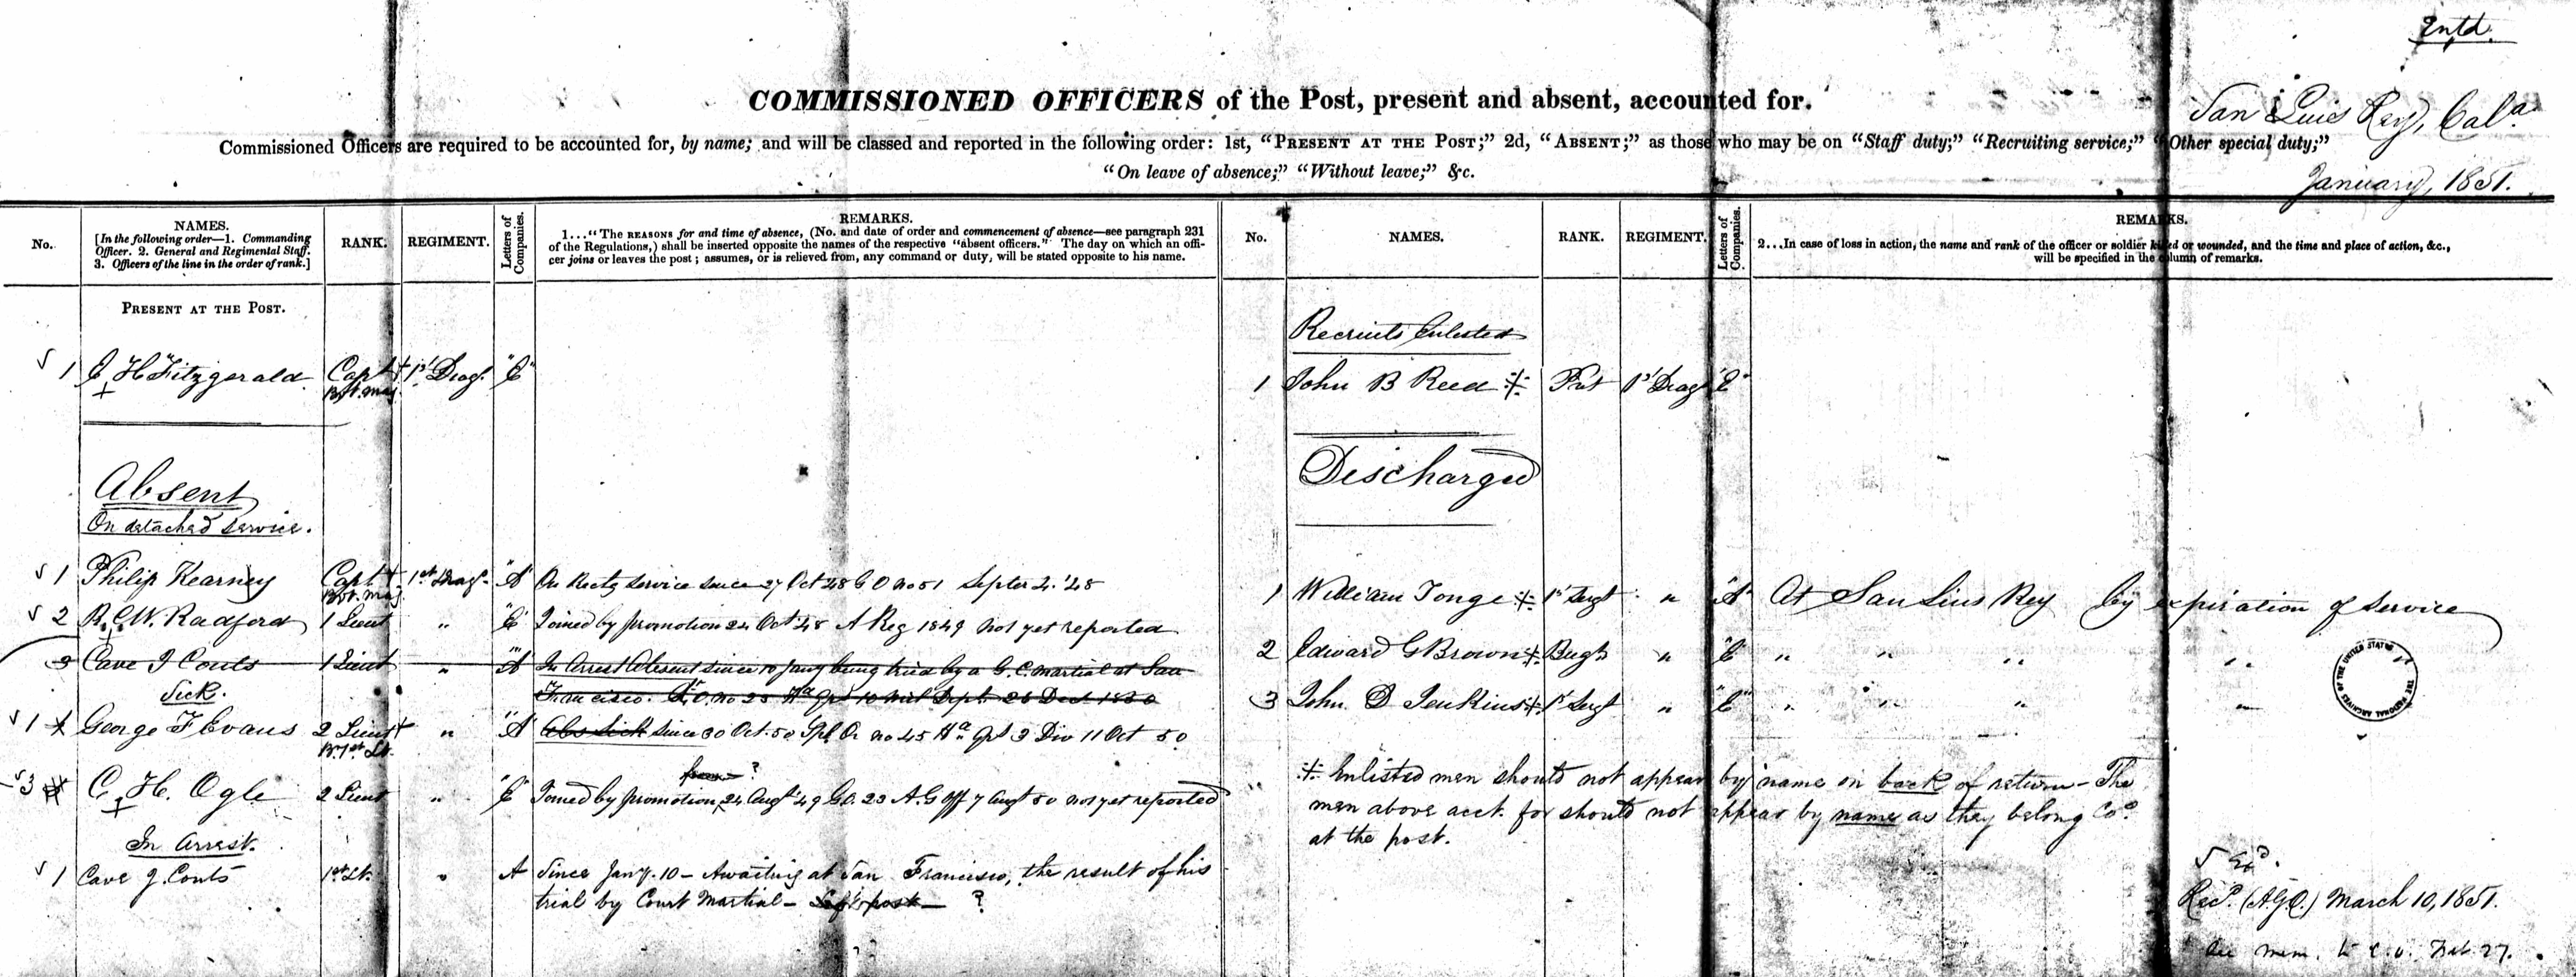 Entd.
COMMISSIONED OFFICERS of the Post, present and absent, accounted for.
San Luis Rey, Cala
Commissioned Officers are required to be accounted for, by name; and will be classed and reported in the following order: 1st, "PRESENT AT THE POST;" 2d, "ABSENT;" as those who may be on "Staff duty;" "Recruiting service;" "Other special duty;"
"On leave of absence;" "Without leave;" &c.
January, 1851.
No.
NAMES.
[In the following order—1. Commanding
Officer. 2. General and Regimental Staff.
3. Officers of the line in the order of rank.]
RANK.
REGIMENT.
Letters of
Companies.
REMARKS.
1..."The REASONS for and time of absence, (No. and date of order and commencement of absence—see paragraph 231
of the Regulations,) shall be inserted opposite the names of the respective "absent officers." The day on which an offi-
cer joins or leaves the post; assumes, or is relieved from, any command or duty, will be stated opposite to his name.
PRESENT AT THE POST.
1 E H Fitzgerald Capt 1st Drags. "E"
Bvt. Maj.
Absent
On detached service.
1 Philip Kearney Capt 1st Drags. "A" On Rectg service since 27 Oct 48 G O no 51 Septer 2. '48
Bvt. Maj.
2 R.C.W. Radford 1 Lieut " "E" Joined by promotion 24 Oct 48 A Reg 1849 not yet reported
3 Cave J Couts 1 Lieut " "A" In Arrest Absent since 10 Jany being tried by a G. C. martial at San
Francisco. O. no 25 Hd Qrs 10 Mil Dept. 26 Decr 1850
Sick.
1 George F Evans 2 Lieut " "A" Abs Sick since 30 Oct. 50 Spl Or no 45 Hd Qrs 3 Div 11 Oct 50
Bt. 1st Lt.
from ?
3 C. H. Ogle 2 Lieut " "E" Joined by promotion, 24 Augt '49 G.O. 23 A.G Off 7 Augt 50 not yet reported
In Arrest.
1 Cave J. Couts 1st Lt. " A Since Jany. 10 – Awaiting at San Francisco, the result of his
trial by Court Martial – Left post – ?
No.
NAMES.
RANK.
REGIMENT.
Letters of
Companies.
REMARKS.
2...In case of loss in action, the name and rank of the officer or soldier killed or wounded, and the time and place of action, &c.,
will be specified in the column of remarks.
Recruits Enlisted
1 John B Reed Pvt 1st Drags "E"
Discharged
1 William Tonge 1st Sergt " "A" At San Luis Rey by expiration of service
2 Edward G Brown Bugr " "E" " " " "
3 John D Jenkins 1st Sergt " "E" " " " "
THE NATIONAL ARCHIVES OF THE UNITED STATES
Enlisted men should not appear by name on back of return – The
men above acct. for should not appear by name as they belong Cos.
at the post.
Exd.
Recd. (A.G.O.) March 10, 1851.
See mem. to C.O. Feb 27.